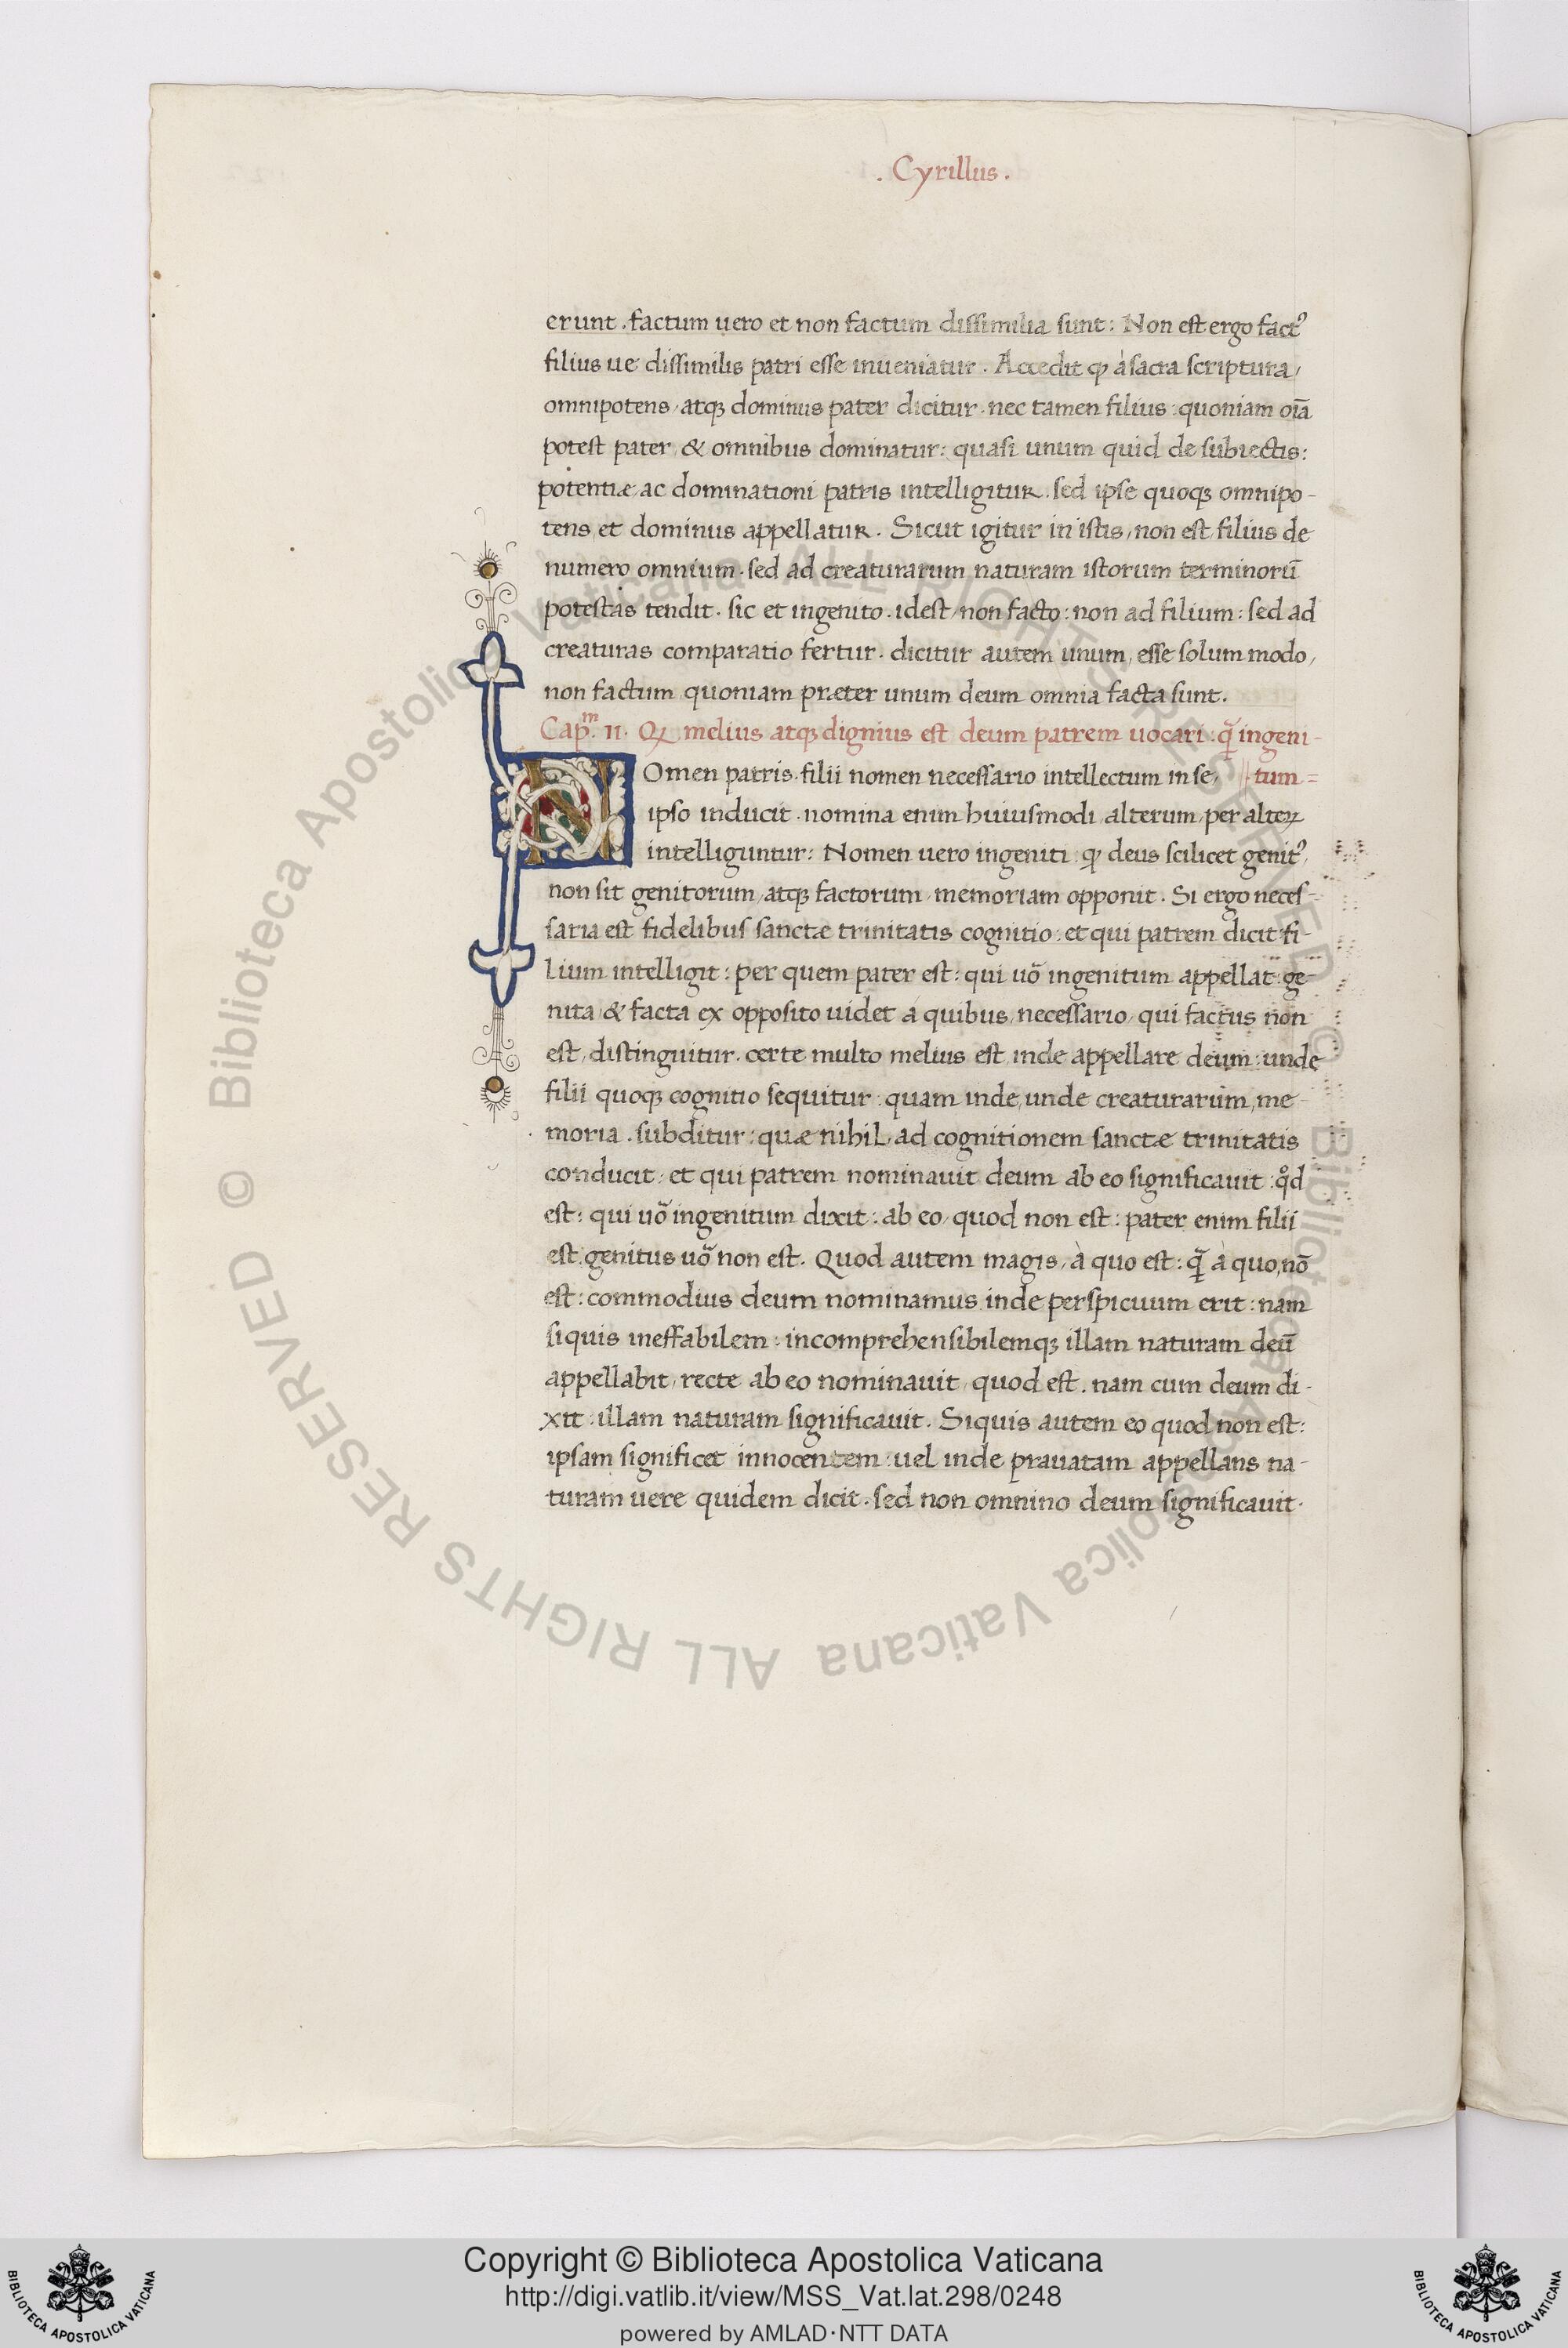 . Cyrillus .
erunt . factum uero et non factum dissimilia sunt : Non est ergo fact᾽
filius ue dissimilis patri esse inueniatur . Accedit ꝙ à sacra scriptura,
omnipotens, atqꝫ dominus pater dicitur . nec tamen filius : quoniam oīa
potest pater, & omnibus dominatur : quasi unum quid de subiectis :
potentiæ ac dominationi patris intelligitur . sed ipse quoqꝫ omnipo-
tens et dominus appellatur . Sicut igitur in istis, non est filius de
numero omnium . sed ad creaturarum naturam istorum terminorū
potestas tendit . sic et ingenito . idest, non facto : non ad filium : sed ad
creaturas comparatio fertur . dicitur autem unum, esse solum modo,
non factum quoniam præter unum deum omnia facta sunt .
Cap.ᵐ II . Qꝫ melius atqꝫ dignius est deum patrem uocari : q̄ ingeni-
Nomen patris . filii nomen necessario intellectum in se, // tum =
ipso inducit . nomina enim huiusmodi alterum, per alteꝝ
intelliguntur : Nomen uero ingeniti : ꝙ deus scilicet genit᾽,
non sit genitorum, atqꝫ factorum, memoriam opponit . Si ergo neces-
saria est fidelibus sanctæ trinitatis cognitio : et qui patrem dicit fi-
lium intelligit : per quem pater est : qui uō ingenitum appellat : ge-
nita, & facta ex opposito uidet à quibus, necessario, qui factus non
est, distinguitur . certe multo melius est inde appellare deum : unde
filii quoqꝫ cognitio sequitur : quam inde, unde creaturarum, me-
moria . subditur : quæ nihil, ad cognitionem sanctæ trinitatis
conducit, et qui patrem nominauit deum ab eo significauit : qͦd
est : qui uō ingenitum dixit : ab eo, quod non est : pater enim filii
est . genitus uō non est . Quod autem magis, à quo est : q̄ à quo, nō
est : commodius deum nominamus inde perspicuum erit : nam
siquis ineffabilem : incomprehensibilemqꝫ illam naturam deū
appellabit, recte ab eo nominauit, quod est . nam cum deum di-
xit : illam naturam significauit . Siquis autem eo quod non est :
ipsam significet innocentem : uel inde prauatam appellans na-
turam uere quidem dicit . sed non omnino deum significauit .
© Biblioteca Apostolica Vaticana ALL RIGHTS RESERVED © Biblioteca Apostolica Vaticana ALL RIGHTS RESERVED
Copyright © Biblioteca Apostolica Vaticana
http://digi.vatlib.it/view/MSS_Vat.lat.298/0248
powered by AMLAD·NTT DATA
BIBLIOTECA APOSTOLICA VATICANA
BIBLIOTECA APOSTOLICA VATICANA